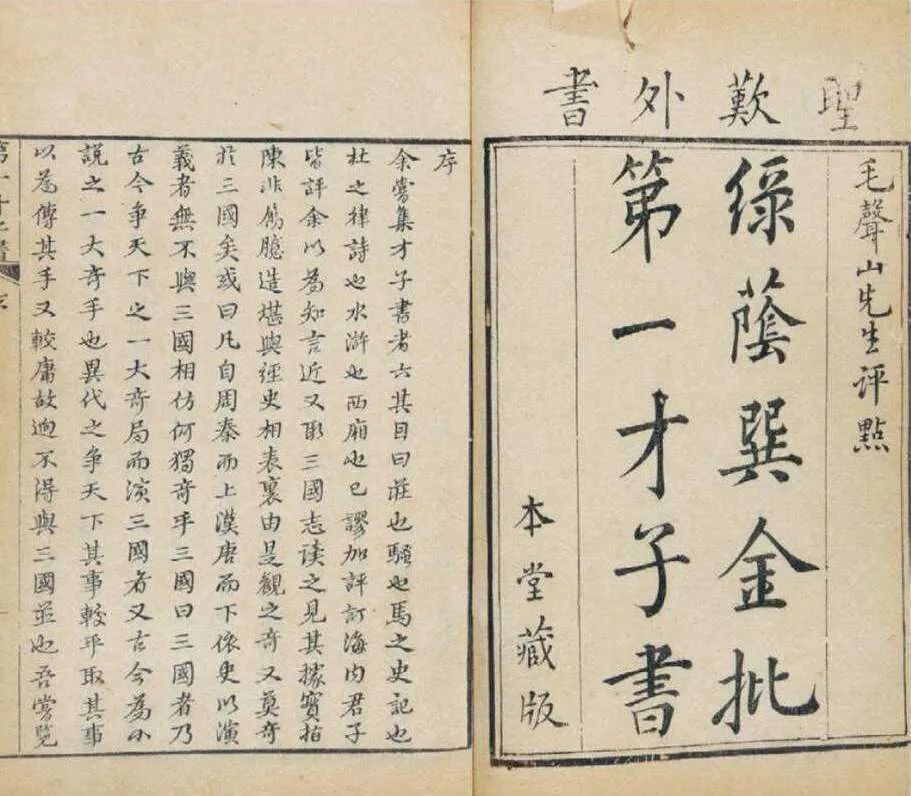 聖歎外書
毛聲山先生評點
綠蔭巽金批
第一才子書
本堂藏版
序
余嘗集才子書者六其目曰莊也騷也馬之史記也
杜之律詩也水滸也西廂也已謬加評訂海內君子
皆評余以為知言近又取三國志讀之見其據實指
陳非屬臆造堪與經史相表裏由是觀之奇又莫奇
於三國矣或曰凡自周秦而上漢唐而下依史以演
義者無不與三國相仿何獨奇乎三國曰三國者乃
古今爭天下之一大奇局而演三國者又古今為小
說之一大奇手也異代之爭天下其事較平取其事
以為傳其手又較庸故迥不得與三國並也吾嘗覽